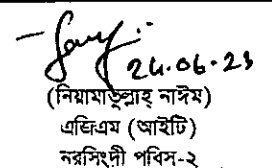 24.06.23
(নিয়ামাতুল্লাহ্ নাঈম)
এজিএম (আইটি)
নরসিংদী পবিস-২